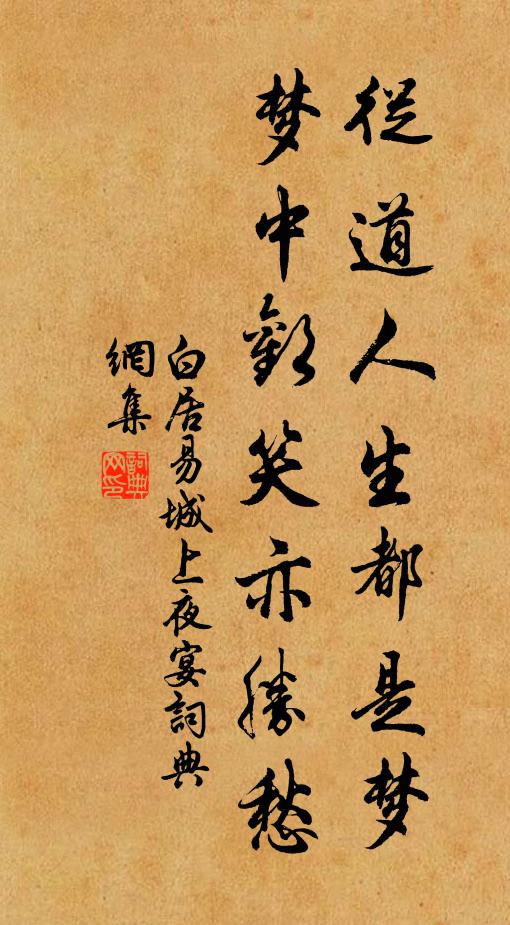 從道人生都是梦
梦中歡笑亦勝愁
白居易城上夜宴詞典
網集
詞典
网印